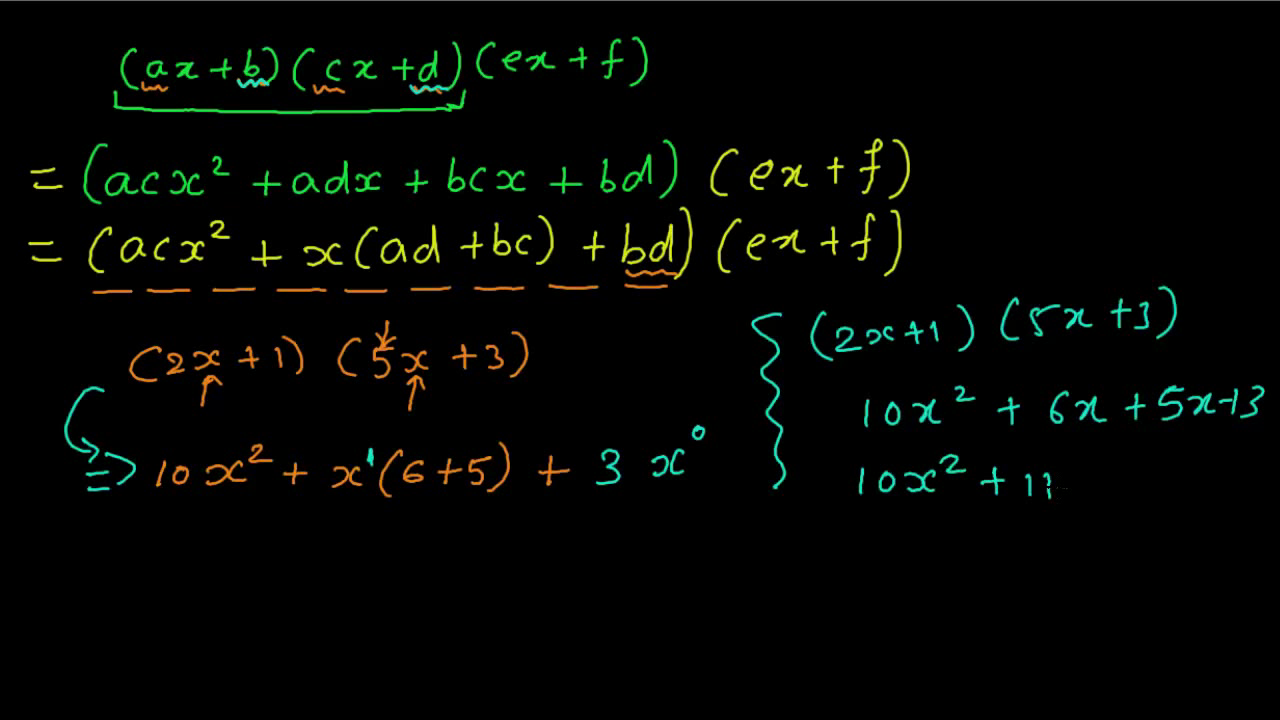 (ax+b)(cx+d)(ex+f)
= (acx² + adx + bcx + bd) (ex + f)
= (acx² + x(ad+bc) + bd) (ex+f)
(2x+1) (5x+3)
⇒ 10x² + x¹(6+5) + 3 x⁰
(2x+1) (5x+3)
10x² + 6x + 5x+3
10x² + 11